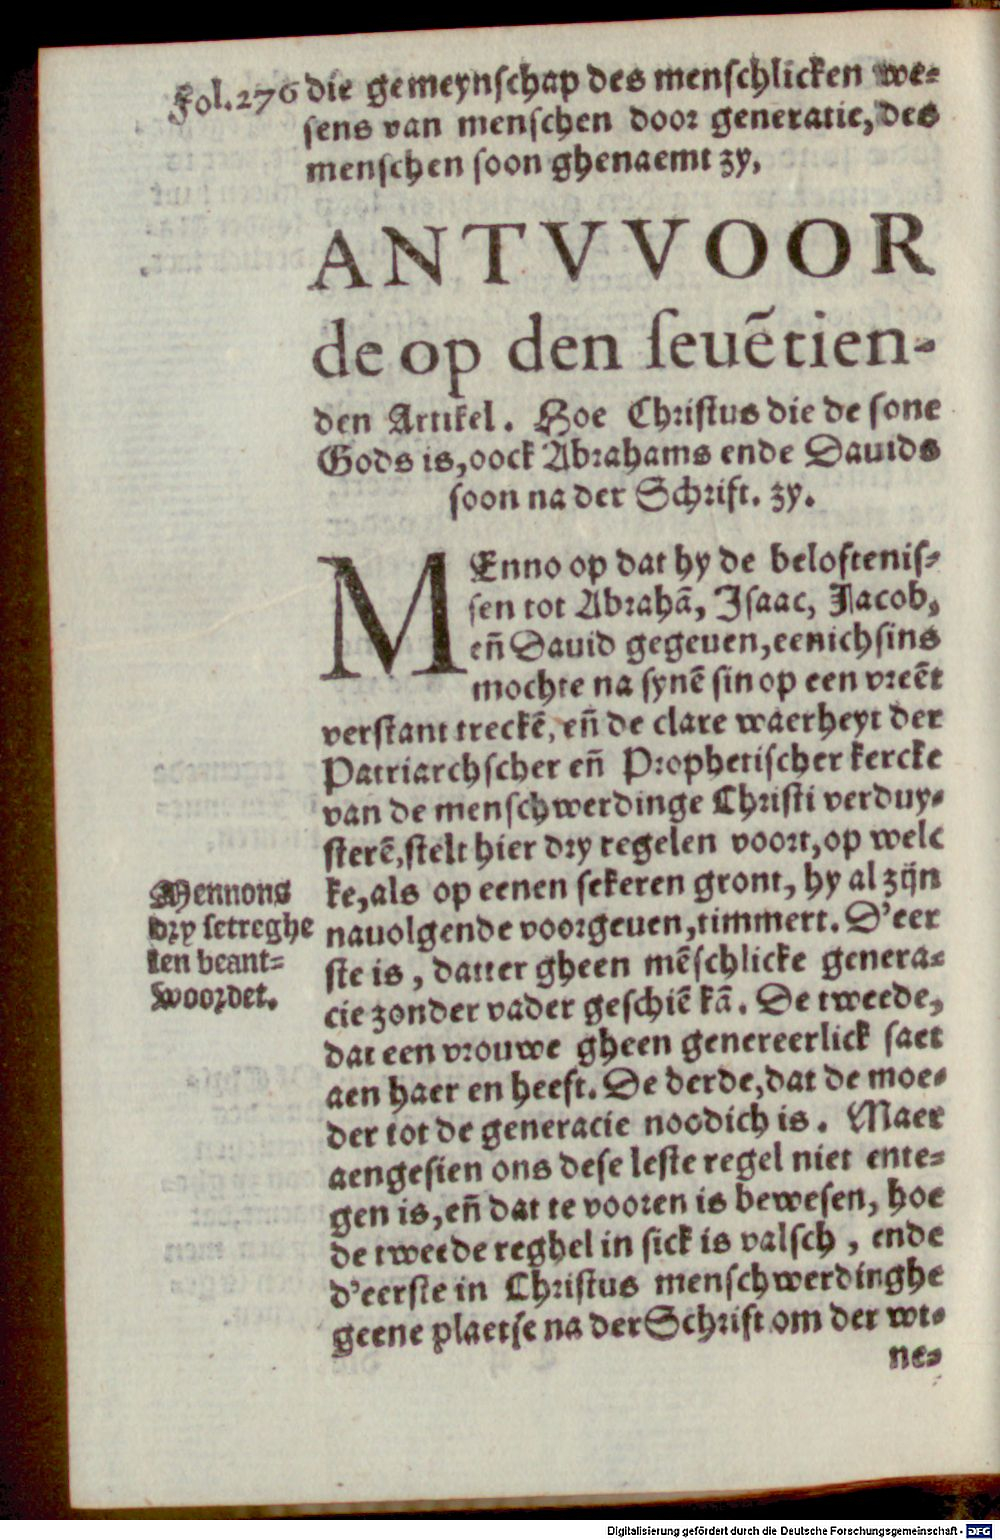 Fol. 276 die gemeynschap des menschlicken we-
sens van menschen door generatie, des
menschen soon ghenaemt zy.
ANTVVOOR
de op den seuẽtien-
den Artikel. Hoe Christus die de sone
Gods is, oock Abrahams ende Dauids
soon na der Schrift. zy.
MEnno op dat hy de beloftenis-
sen tot Abrahã, Isaac, Jacob,
eñ Dauid gegeuen, eenichsins
mochte na synẽ sin op een vreẽt
verstant treckẽ, eñ de clare waerheyt der
Patriarchscher eñ Prophetischer kercke
van de menschwerdinge Christi verduy-
sterẽ, stelt hier dry regelen voort, op welc
ke, als op eenen sekeren gront, hy al zijn
nauolgende voorgeuen, timmert. D'eer
ste is, datter gheen mẽschlicke genera-
cie zonder vader geschiẽ kã. De tweede,
dat een vrouwe gheen genereerlick saet
aen haer en heeft. De derde, dat de moe-
der tot de generacie noodich is. Maer
aengesien ons dese leste regel niet ente-
gen is, eñ dat te vooren is bewesen, hoe
de tweede reghel in sick is valsch, ende
d'eerste in Christus menschwerdinghe
geene plaetse na der Schrift om der wt-
ne-
Mennons
dry setreghe
len beant-
woordet.
Digitalisierung gefördert durch die Deutsche Forschungsgemeinschaft - DFG